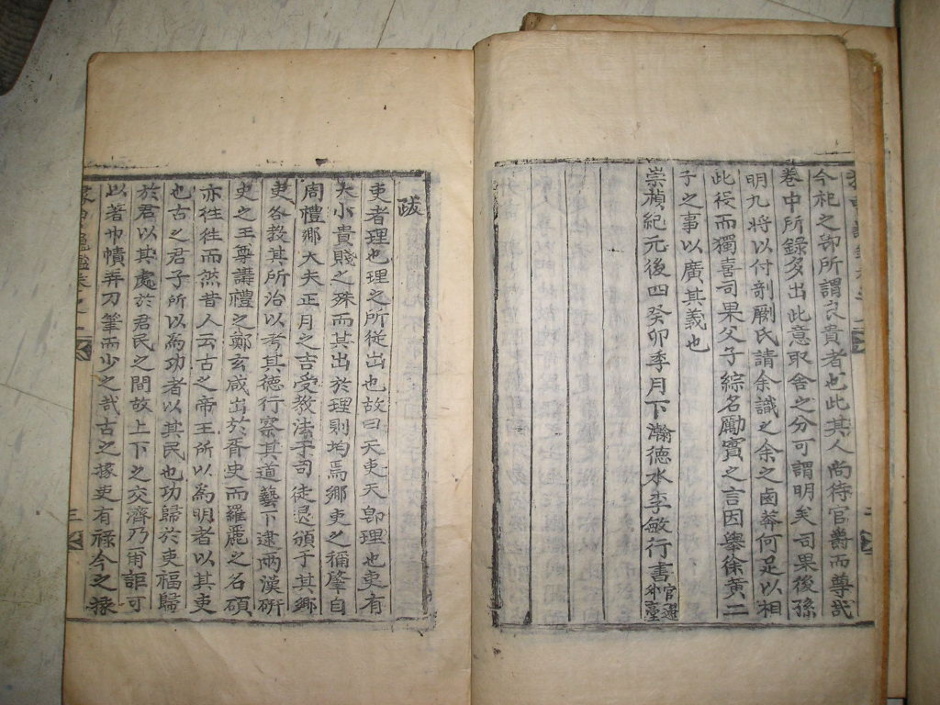 今杞之卽所謂良貴者也此其人尚待官爵而尊哉
卷中所錄多出此意取舍之分可謂明矣司果後孫
明九將以付剞劂氏請余識之余之鹵莽何足以相
此役而獨喜司果父子綜名勵實之言因舉徐黃二
子之事以廣其義也
崇禎紀元後四癸卯季月下瀚德水李敏行書
跋
吏者理也理之所從出也故曰天吏天卽理也吏有
大小貴賤之殊而其出於理則均焉鄉吏之稱肇自
周禮鄉大夫正月之吉受教法于司徒退頒于其鄉
吏各教其所治以考其德行察其道藝下逮兩漢斫
史之王尊講禮之鄭玄咸出於胥史而羅麗之名碩
亦往往而然昔人云古之帝王所以為明者以其吏
也古之君子所以為功者以其民也功歸於吏福歸
於君以其處於君民之間故上下之交濟乃爾詎可
以著巾幘弄刀筆而少之哉古之掾吏有祿今之掾
三